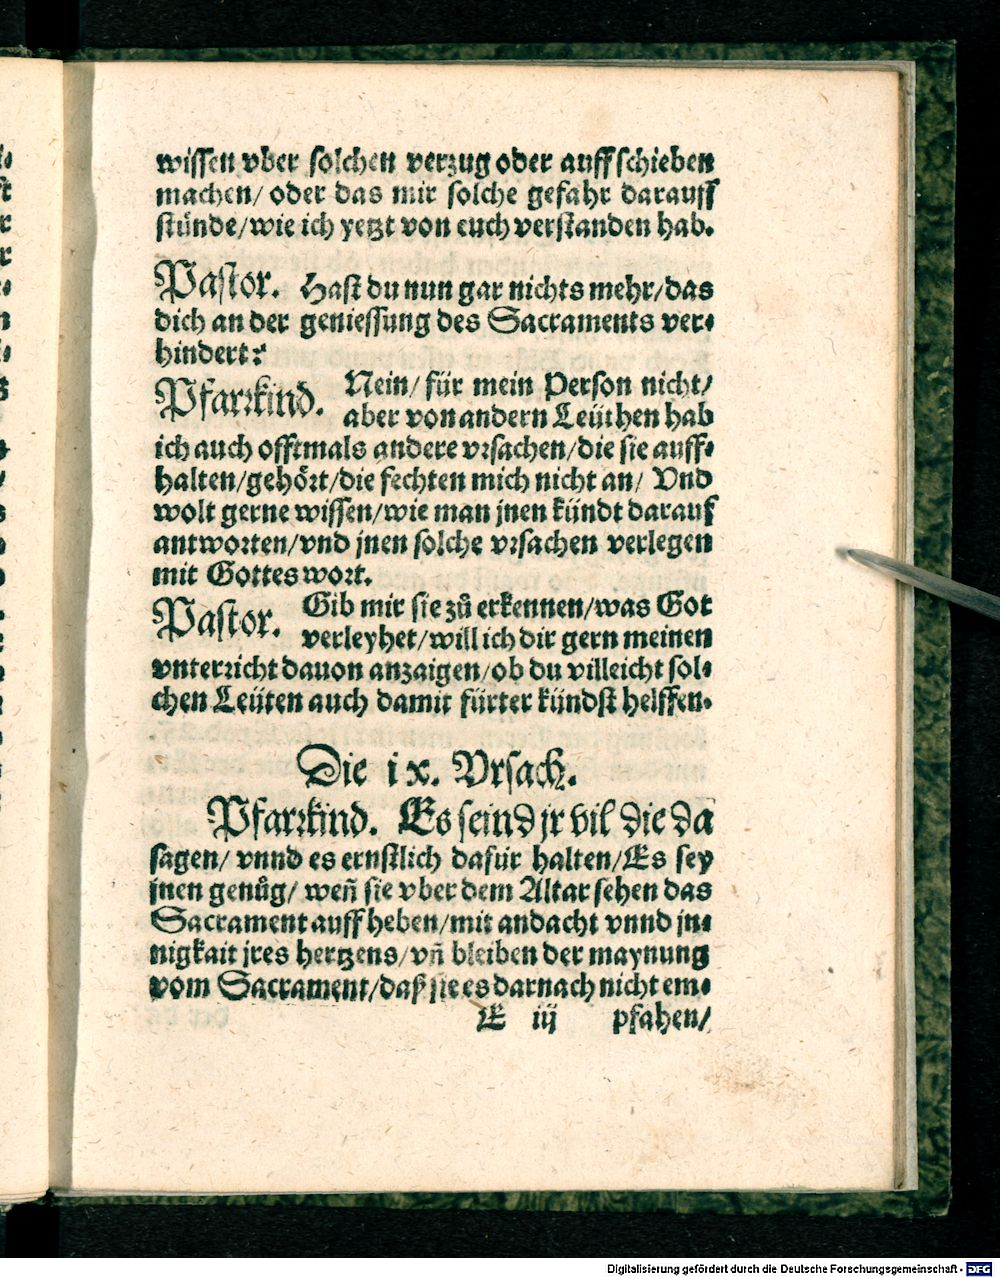 wissen vber solchen verzug oder auffschieben
machen/ oder das mir solche gefahr darauss
stünde/wie ich yetzt von euch verstanden hab.
Pastor. Hast du nun gar nichts mehr/das
dich an der geniessung des Sacraments ver⸗
hindert?
Pfarrkind. Nein/ für mein Person nicht/
aber von andern Leüthen hab
ich auch offtmals andere vrsachen/die sie auff⸗
halten/gehört/die fechten mich nicht an/ Vnd
wolt gerne wissen/wie man jnen kündt darauf
antworten/vnd jnen solche vrsachen verlegen
mit Gottes wort.
Pastor. Gib mir sie zů erkennen/was Got
verleyhet/will ich dir gern meinen
vnterricht dauon anzaigen/ob du villeicht sol⸗
chen Leüten auch damit fürter kündst helffen.
Die ix. Vrsach.
Pfarrkind. Es seind jr vil die da
sagen/ vnnd es ernstlich dafür halten/Es sey
jnen genůg/ weñ sie vber dem Altar sehen das
Sacrament auffheben/mit andacht vnnd jn⸗
nigkait jres hertzens/vñ bleiben der maynung
vom Sacrament/daß sie es darnach nicht em⸗
E iij pfahen/
Digitalisierung gefördert durch die Deutsche Forschungsgemeinschaft - DFG